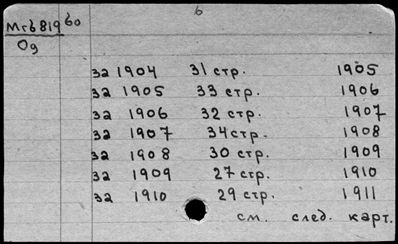 6
Мrб 819 60
Од
за 1904 31 стр. 1905
за 1905 33 стр. 1906
за 1906 32 стр. 1907
за 1907 34 стр. 1908
за 1908 30 стр. 1909
за 1909 27 стр. 1910
за 1910 29 стр. 1911
см. след. карт.